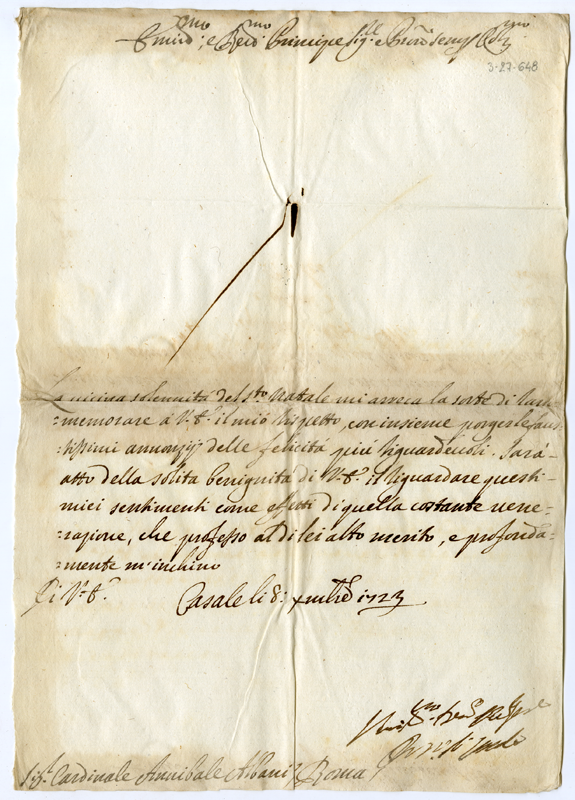 Em.mo, e Re.mo Principe Sig.re e Pron.
3-27-648
La vicina solennità del S.to Natale mi arreca la sorte di ram=
=memorare à V.E. il mio rispetto, con insieme porgerle faus=
=tissimi annonzij delle felicità più riguardevoli. Sarà
atto della solita benignità di V.E. il riguardare questi
miei sentimenti come effetti di quella costante vene=
=razione, che professo al di lei alto merito, e profonda=
=mente m'inchino
Di V.E.
Casale li 8: Xmbre 1723
Sig.r Cardinale Annibale Albani Roma